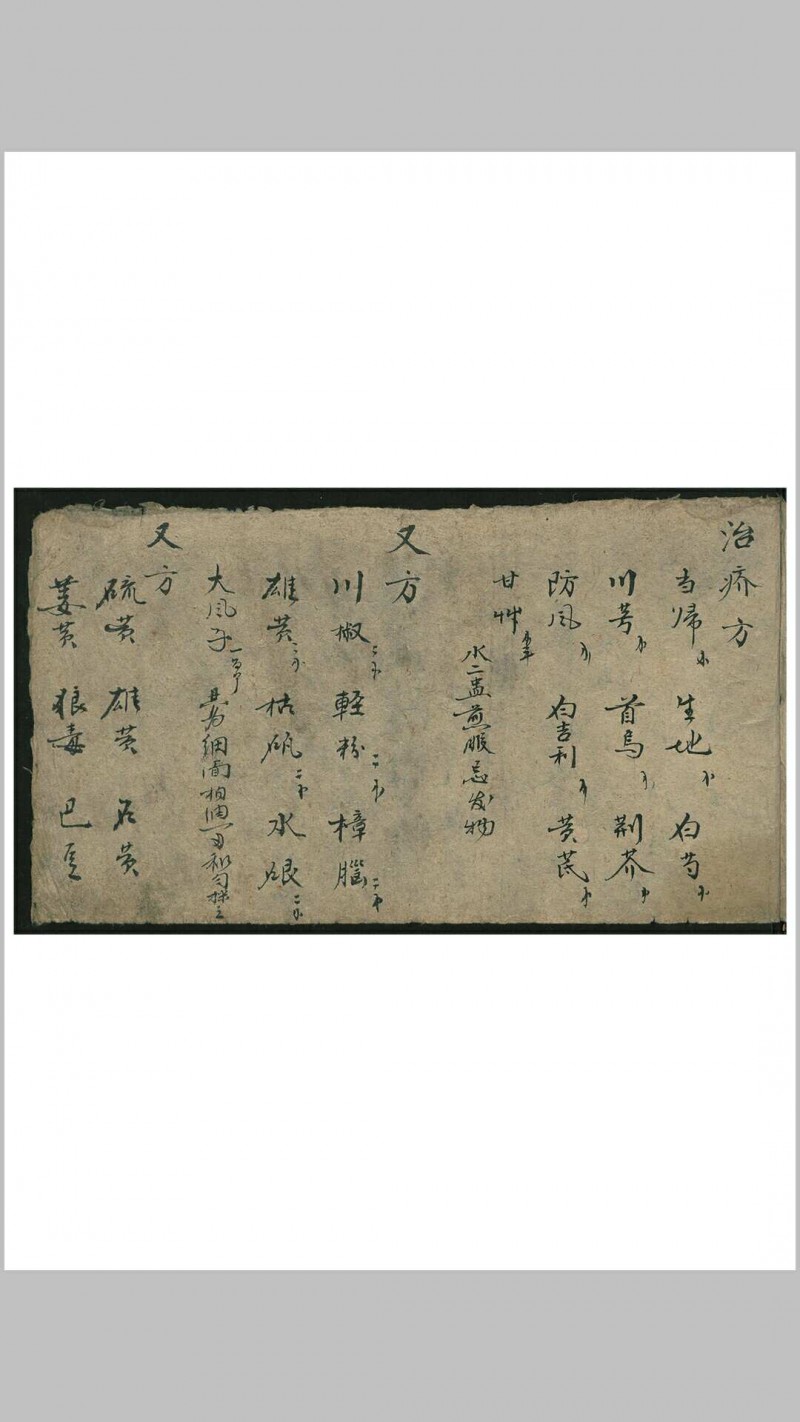 治疥方
当归 生地 白芍
川芎 首乌 荆芥
防风 白吉利 黄芪
甘艸
水二盅煎服忌发物
又方
川椒二 軽粉二 樟腦二
雄黄三 枯矾二 水銀二
大风子一百个 共为細面
又方
硫黄 雄黄 石黄
姜黄 狼毒 巴豆